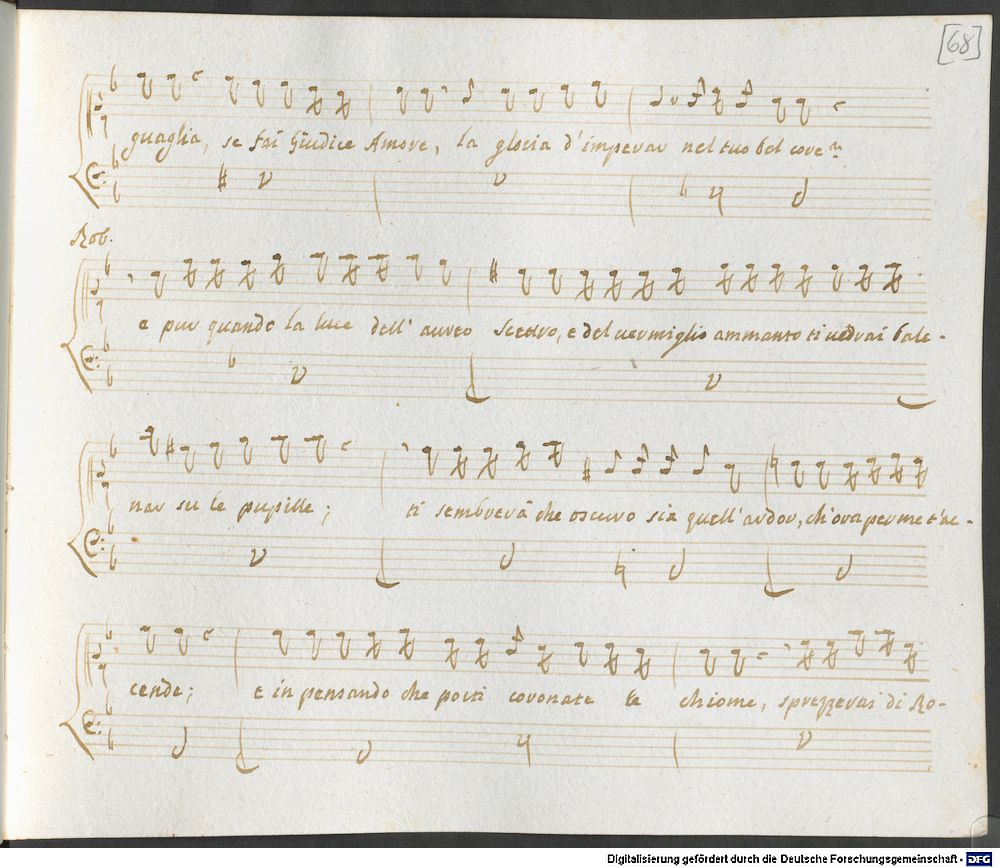 [68]
guaglia, se fai Giudice Amore, la gloria d'imperar nel tuo bel core.
Rob.
e pur quando la luce dell' aureo Scettro, e del vermiglio ammanto ti vedrai bale-
nar su le pupille; ti sembrerà che oscuro sia quell' ardor, ch'ora per me t'ac-
cende; e in pensando che porti coronate le chiome, sprezzerai di Ro-
Digitalisierung gefördert durch die Deutsche Forschungsgemeinschaft - DFG